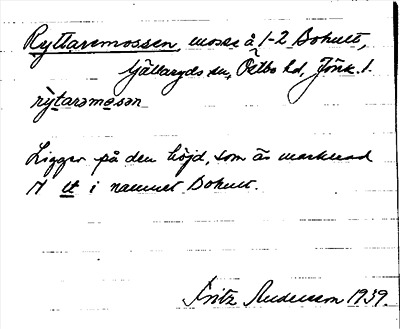 Ryttaremossen, mosse å 1-2 Bohult,
Gällaryds sn, Östbo hd, Jönk. l.
rỳtarəmɵsən
Ligger på den höjd, som är markerad
N lt i namnet Bohult.
Fritz Andersson 1939.